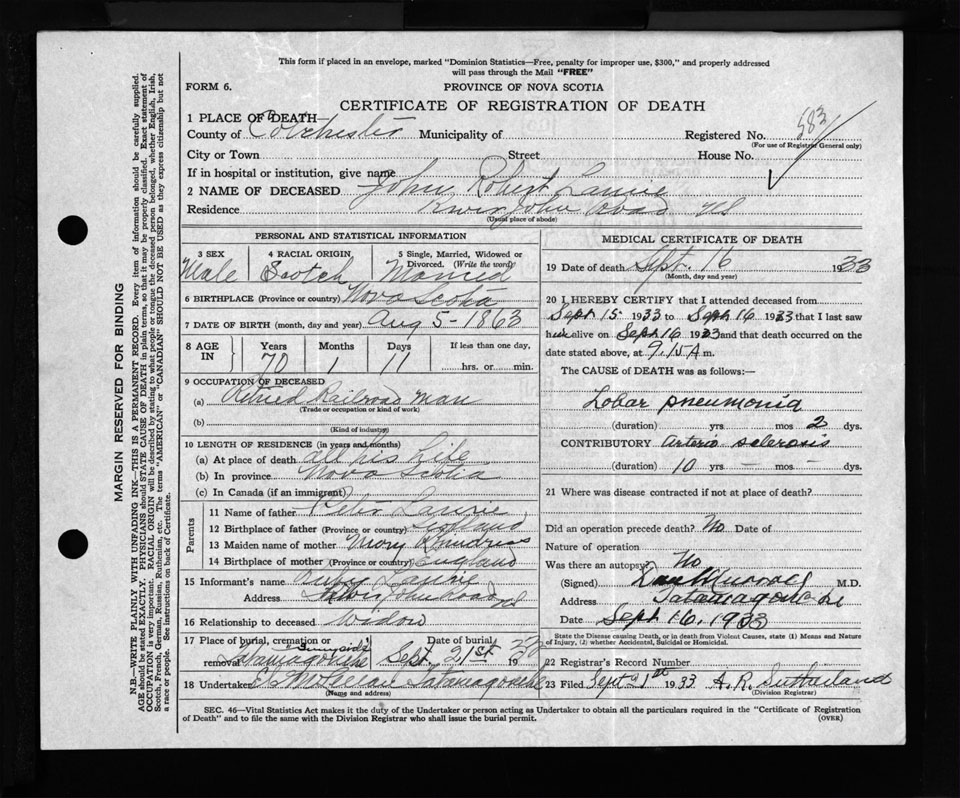 This form if placed in an envelope, marked "Dominion Statistics—Free, penalty for improper use, $300," and properly addressed
will pass through the Mail "FREE"
FORM 6.
PROVINCE OF NOVA SCOTIA
CERTIFICATE OF REGISTRATION OF DEATH
1 PLACE OF DEATH—
County of Colchester Municipality of Registered No. 583
(For use of Registrar General only)
City or Town Street House No.
If in hospital or institution, give name
2 NAME OF DECEASED John Robert Laurie
Residence River John Road NS
(Usual place of abode)
PERSONAL AND STATISTICAL INFORMATION
3 SEX 4 RACIAL ORIGIN 5 Single, Married, Widowed or
Divorced. (Write the word)
Male Scotch Married
6 BIRTHPLACE (Province or country) Nova Scotia
7 DATE OF BIRTH (month, day and year) Aug 5 - 1863
8 AGE IN Years Months Days If less than one day,
70 1 11 hrs. or min.
9 OCCUPATION OF DECEASED
(a) Retired Railroad man
(Trade or occupation or kind of work)
(b)
(Kind of industry)
10 LENGTH OF RESIDENCE (in years and months)
(a) At place of death all his life
(b) In province Nova Scotia
(c) In Canada (if an immigrant)
Parents
11 Name of father Peter Laurie
12 Birthplace of father (Province or country) Scotland
13 Maiden name of mother Mary
14 Birthplace of mother (Province or country) England
15 Informant's name Laurie
Address River John Road NS
16 Relationship to deceased Widow
17 Place of burial, cremation or Date of burial
"Sunnyside"
removal Tatamagouche Sept. 21st 1933
18 Undertaker Tatamagouche
(Name and address)
MEDICAL CERTIFICATE OF DEATH
19 Date of death Sept. 16 1933
(Month, day and year)
20 I HEREBY CERTIFY that I attended deceased from
Sept 15 1933 to Sept 16 1933 that I last saw
him alive on Sept 16 1933 and that death occurred on the
date stated above, at 9.15 A m.
The CAUSE of DEATH was as follows:—
Lobar pneumonia
(duration) yrs. mos 2 dys.
CONTRIBUTORY Arterio sclerosis
(duration) 10 yrs — mos — dys.
21 Where was disease contracted if not at place of death?
Did an operation precede death? No Date of
Nature of operation
Was there an autopsy No
(Signed) Murray M.D.
Address Tatamagouche NS
Date Sept 16, 1933
State the Disease causing Death, or in death from Violent Causes, state (1) Means and Nature
of Injury, (2) whether Accidental, Suicidal or Homicidal.
22 Registrar's Record Number
23 Filed Sept 21st 1933 A. R. Sutherland
(Division Registrar)
SEC. 46—Vital Statistics Act makes it the duty of the Undertaker or person acting as Undertaker to obtain all the particulars required in the "Certificate of Registration
of Death" and to file the same with the Division Registrar who shall issue the burial permit.
(OVER)
MARGIN RESERVED FOR BINDING
N.B.—WRITE PLAINLY WITH UNFADING INK—THIS IS A PERMANENT RECORD. Every item of information should be carefully supplied.
AGE should be stated EXACTLY. PHYSICIANS should STATE CAUSE OF DEATH in plain terms, so that it may be properly classified. Exact statement of
OCCUPATION is very important. RACIAL ORIGIN will be described by stating to what people or tongue the deceased person belonged, whether English, Irish,
Scotch, French, German, Russian, Ruthenian, etc. The terms "AMERICAN" or "CANADIAN" SHOULD NOT BE USED as they express citizenship but not
a race or people. See instructions on back of Certificate.